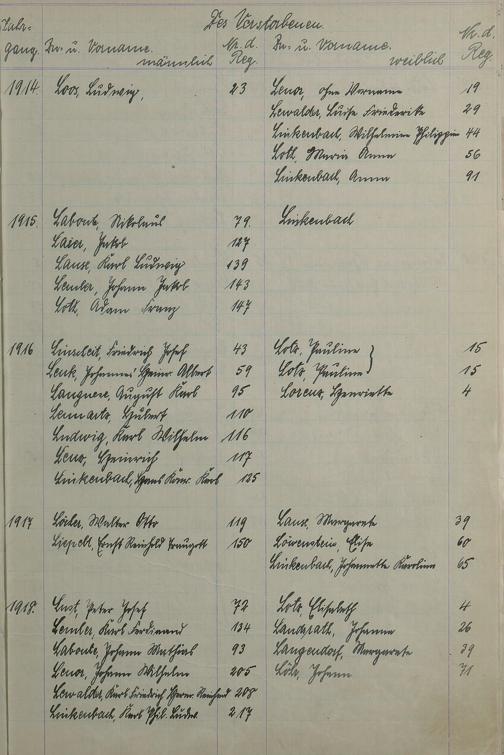 Des Verstorbenen.
Jahr-
gang. Zu- u. Vorname. männlich Nr. d. Reg. Zu- u. Vorname. weiblich Nr. d. Reg.
1914 Loos, Ludwig, 23 Lenz, ohne Vorname 19
Lewalder, Luise Friederike 29
Linkenbach, Wilhelmine Philippine 44
Loth, Maria Anna 56
Linkenbach, Anna 91
1915. Labonte, Nikolaus 79. Linkenbach
Laier, Jakob 127
Laux, Karl Ludwig 139
Lemler, Johann Jakob 143
Lott, Adam Franz 147
1916 Friedrich Josef 43 Lotz, Pauline 15
Lenk, Johannes Albert 59 Lotz, Pauline 15
August Karl 95 Lorenz, Henriette 4
Lennartz, Hubert 110
Ludwig, Karl Wilhelm 116
Lenz, Heinrich 117
Linkenbach, Hans Karl 125
1917 Walter Otto 119 Laux, Margarete 39
Ernst Reinhold Traugott 150 Löwenstein, Elise 60
Linkenbach, Johannette Karoline 65
1918. Lust, Peter Josef 72 Lotz, Elisabeth 4
Lemler, Karl Ferdinand 134 Landgrath, Johanna 26
Labonte, Johann Mathias 93 Langendorf, Margarete 39
Lenz, Johann Wilhelm 205 Johann 71
Lewalder, Karl Friedrich 208
Linkenbach, Karl Phil. Ludw. 217